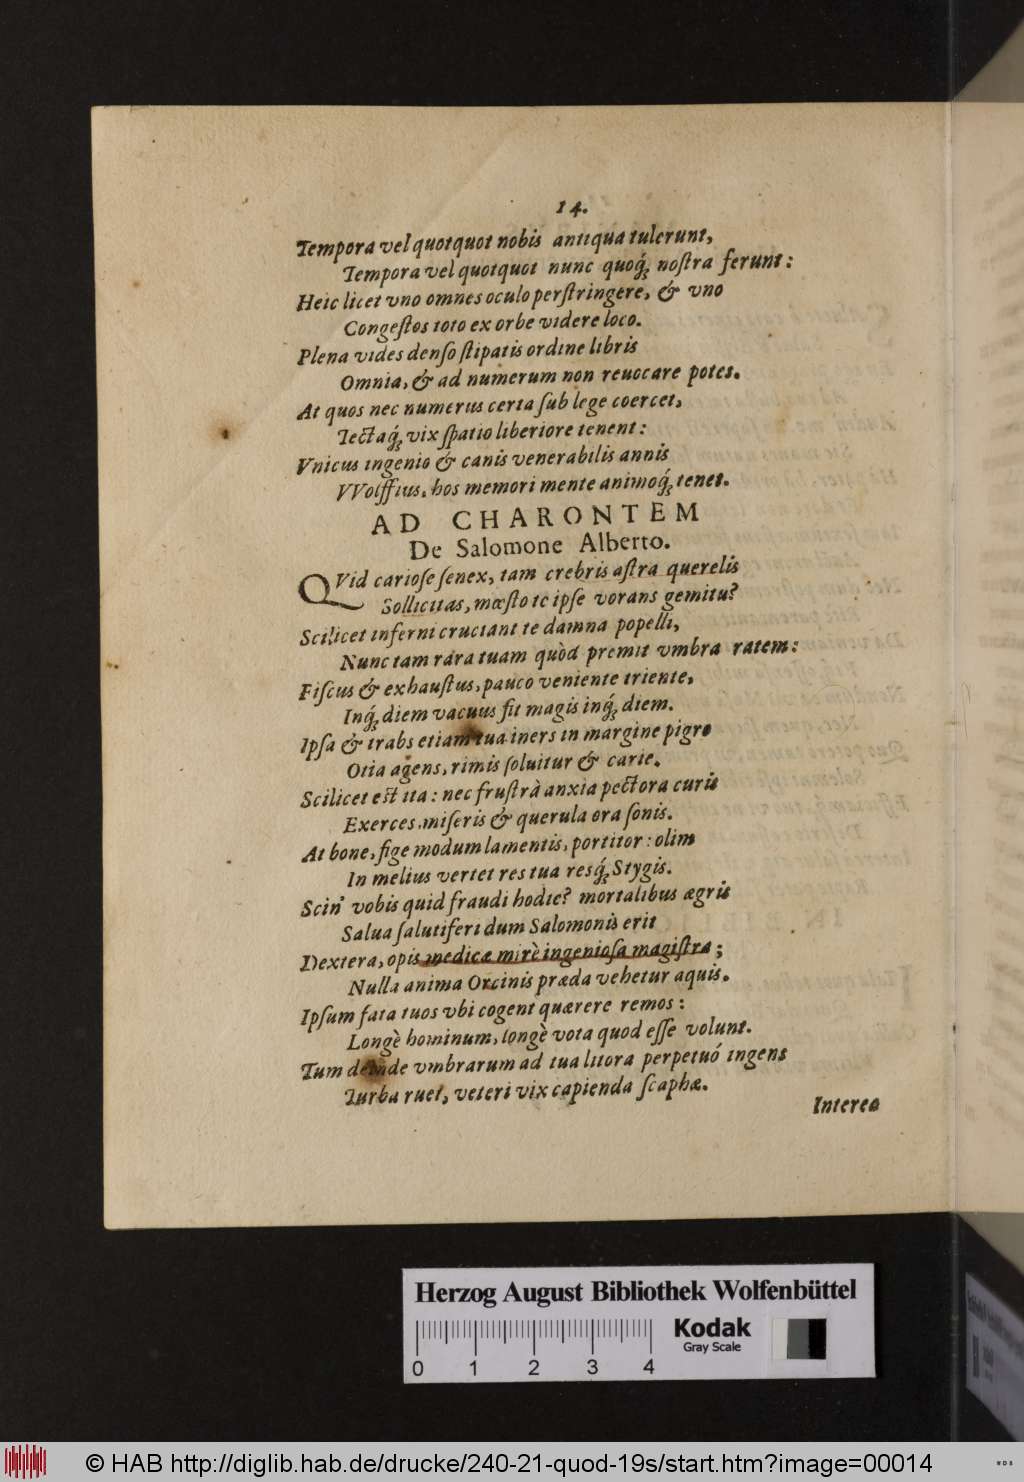 14.
Tempora vel quotquot nobis antiqua tulerunt,
Tempora vel quotquot nunc quoq́; noſtra ferunt:
Heic licet vno omnes oculo perſtringere, & vno
Congeſtos toto ex orbe videre loco.
Plena vides denſo ſtipatis ordine libris
Omnia, & ad numerum non reuocare potes.
At quos nec numerus certa ſub lege coercet,
Tectaq́; vix ſpatio liberiore tenent:
Vnicus ingenio & canis venerabilis annis
VVolffius, hos memori mente animoq́; tenet.
AD CHARONTEM
De Salomone Alberto.
QVid carioſe ſenex, tam crebris aſtra querelis
Sollicitas, mœſto te ipſe vorans gemitu?
Scilicet inferni cruciant te damna popelli,
Nunc tam rára tuam quòd premit vmbra ratem:
Fiſcus & exhauſtus, pauco veniente triente,
Inq́; diem vacuus fit magis inq́; diem.
Ipſa & trabs etiam tua iners in margine pigro
Otia agens, rimis ſoluitur & carie.
Scilicet est ita: nec fruſtrà anxia pectora curis
Exerces miſeris & querula ora ſonis.
At bone, fige modum lamentis, portitor: olim
In melius vertet res tua resq́; Stygis.
Scin' vobis quid fraudi hodie? mortalibus ægris
Salua ſalutiferi dum Salomonis erit
Dextera, opis medicæ mirè ingenioſa magiſtra;
Nulla anima Orcinis præda vehetur aquis.
Ipſum fata tuos vbi cogent quærere remos:
Longè hominum, longè vota quod eſſe volunt.
Tum deinde vmbrarum ad tua litora perpetuó ingens
Turba ruet, veteri vix capienda ſcaphæ.
Interea
Herzog August Bibliothek Wolfenbüttel
0 1 2 3 4
Kodak
Gray Scale
© HAB http://diglib.hab.de/drucke/240-21-quod-19s/start.htm?image=00014